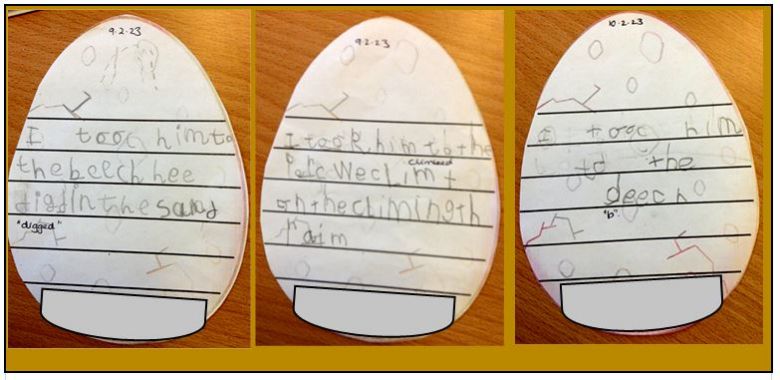 9.2.23
I tooc him to
the beech hee
digd in the sand
"digged"
9.2.23
I took him to the
Parc We climt
climbed
on the climing th
raim
10.2.23
I tooc him
to the
deech
"b"